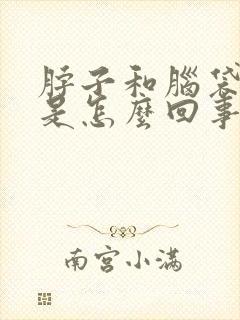 脖子和腦袋
是怎麼回事
南宮小滿